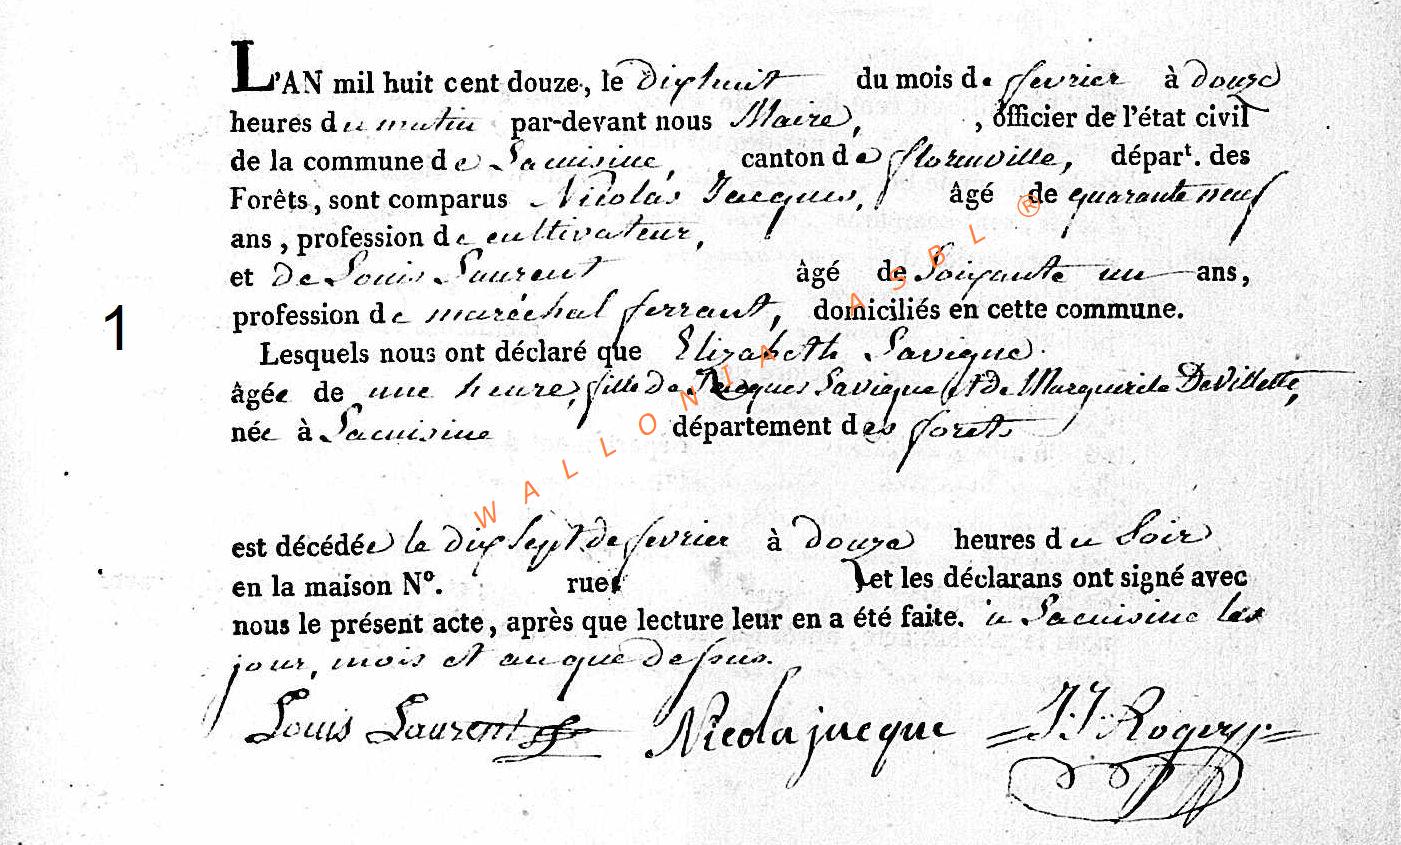 L'AN mil huit cent douze, le dixhuit du mois de fevrier à douze
heures du matin par-devant nous Maire, , officier de l'état civil
de la commune de Lacuisine, canton de florenville, départ. des
Forêts, sont comparus Nicolas Jacques, âgé de quarante neuf
ans, profession de cultivateur,
et de Louis Laurent âgé de Soixante un ans,
profession de maréchal ferrant, domiciliés en cette commune.
1
Lesquels nous ont déclaré que Elizabeth Lavigne
âgée de une heure, fille de Jacques Lavigne et de Marguerite DeVillette,
née à Lacuisine département des forets
est décédée le dix Sept de fevrier à douze heures du Soir
en la maison N°. rue et les déclarans ont signé avec
nous le présent acte, après que lecture leur en a été faite. à Lacuisine les
jour, mois et an que dessus.
Louis Laurent Nicola jacque J. J. Rogery
WALLONIA ASBL ®